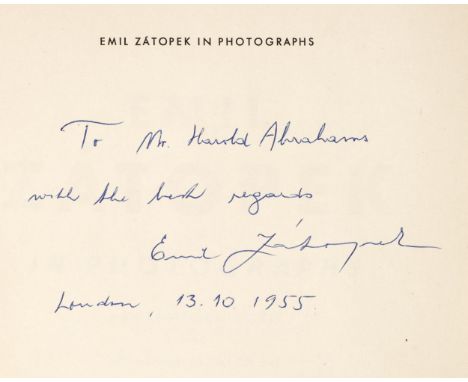 EMIL ZÁTOPEK IN PHOTOGRAPHS
To Mr. Harold Abrahams
with the best regards
Emil Zátopek
London, 13.10 1955